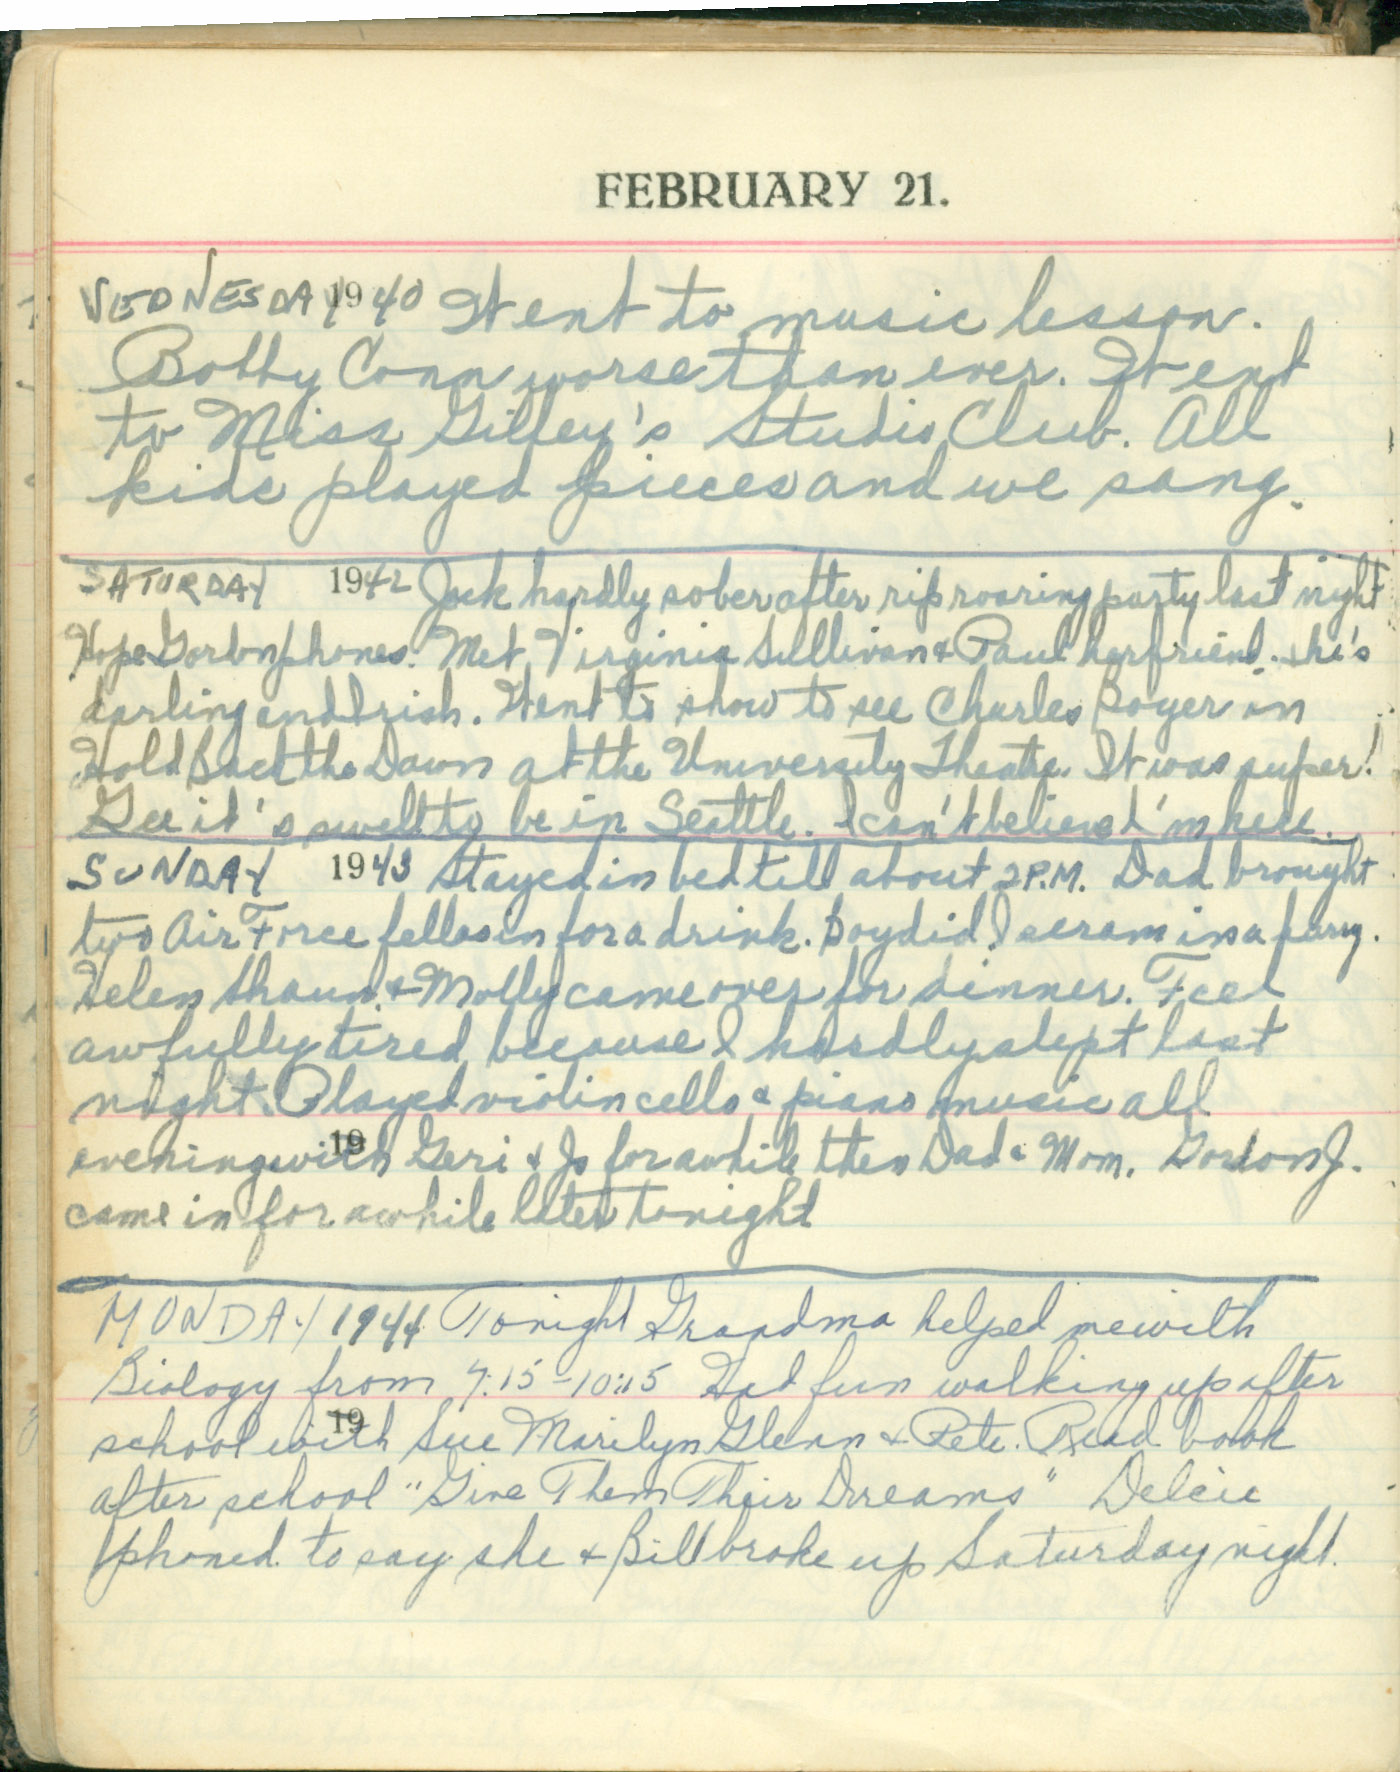 FEBRUARY 21.
WEDNESDAY 1940 Went to music lesson.
Bobby Conn worse than ever. Went
to Miss Gilfey's Studio Club. All
kids played pieces and we sang.
SATURDAY 1942 Jack hardly sober after rip roaring party last night
Hope Gordon phones. Met Virginia Sullivan & Paul her friend. & he's
darling and Irish. Went to show to see Charles Boyer in
Hold Back the Dawn at the University Theatre. It was super!
Gee it's swell to be in Seattle. I can't believe I'm here.
SUNDAY 1943 Stayed in bed till about 2 P.M. Dad brought
two Air Force fellas in for a drink. Boy did I scram in a hurry.
Helen & Molly came over for dinner. Feel
awfully tired because I hardly slept last
night. Played violin cello & piano music all
19
evening with Geri & Jo for awhile then Dad & Mom. Gordon J.
came in for awhile later tonight
MONDAY 1944 Tonight Grandma helped me with
Biology from 7:15-10:15 Had fun walking up after
19
school with Sue Marilyn Glenn & Pete. Read book
after school "Give Them Their Dreams" Delcie
phoned to say she & Bill broke up Saturday night.